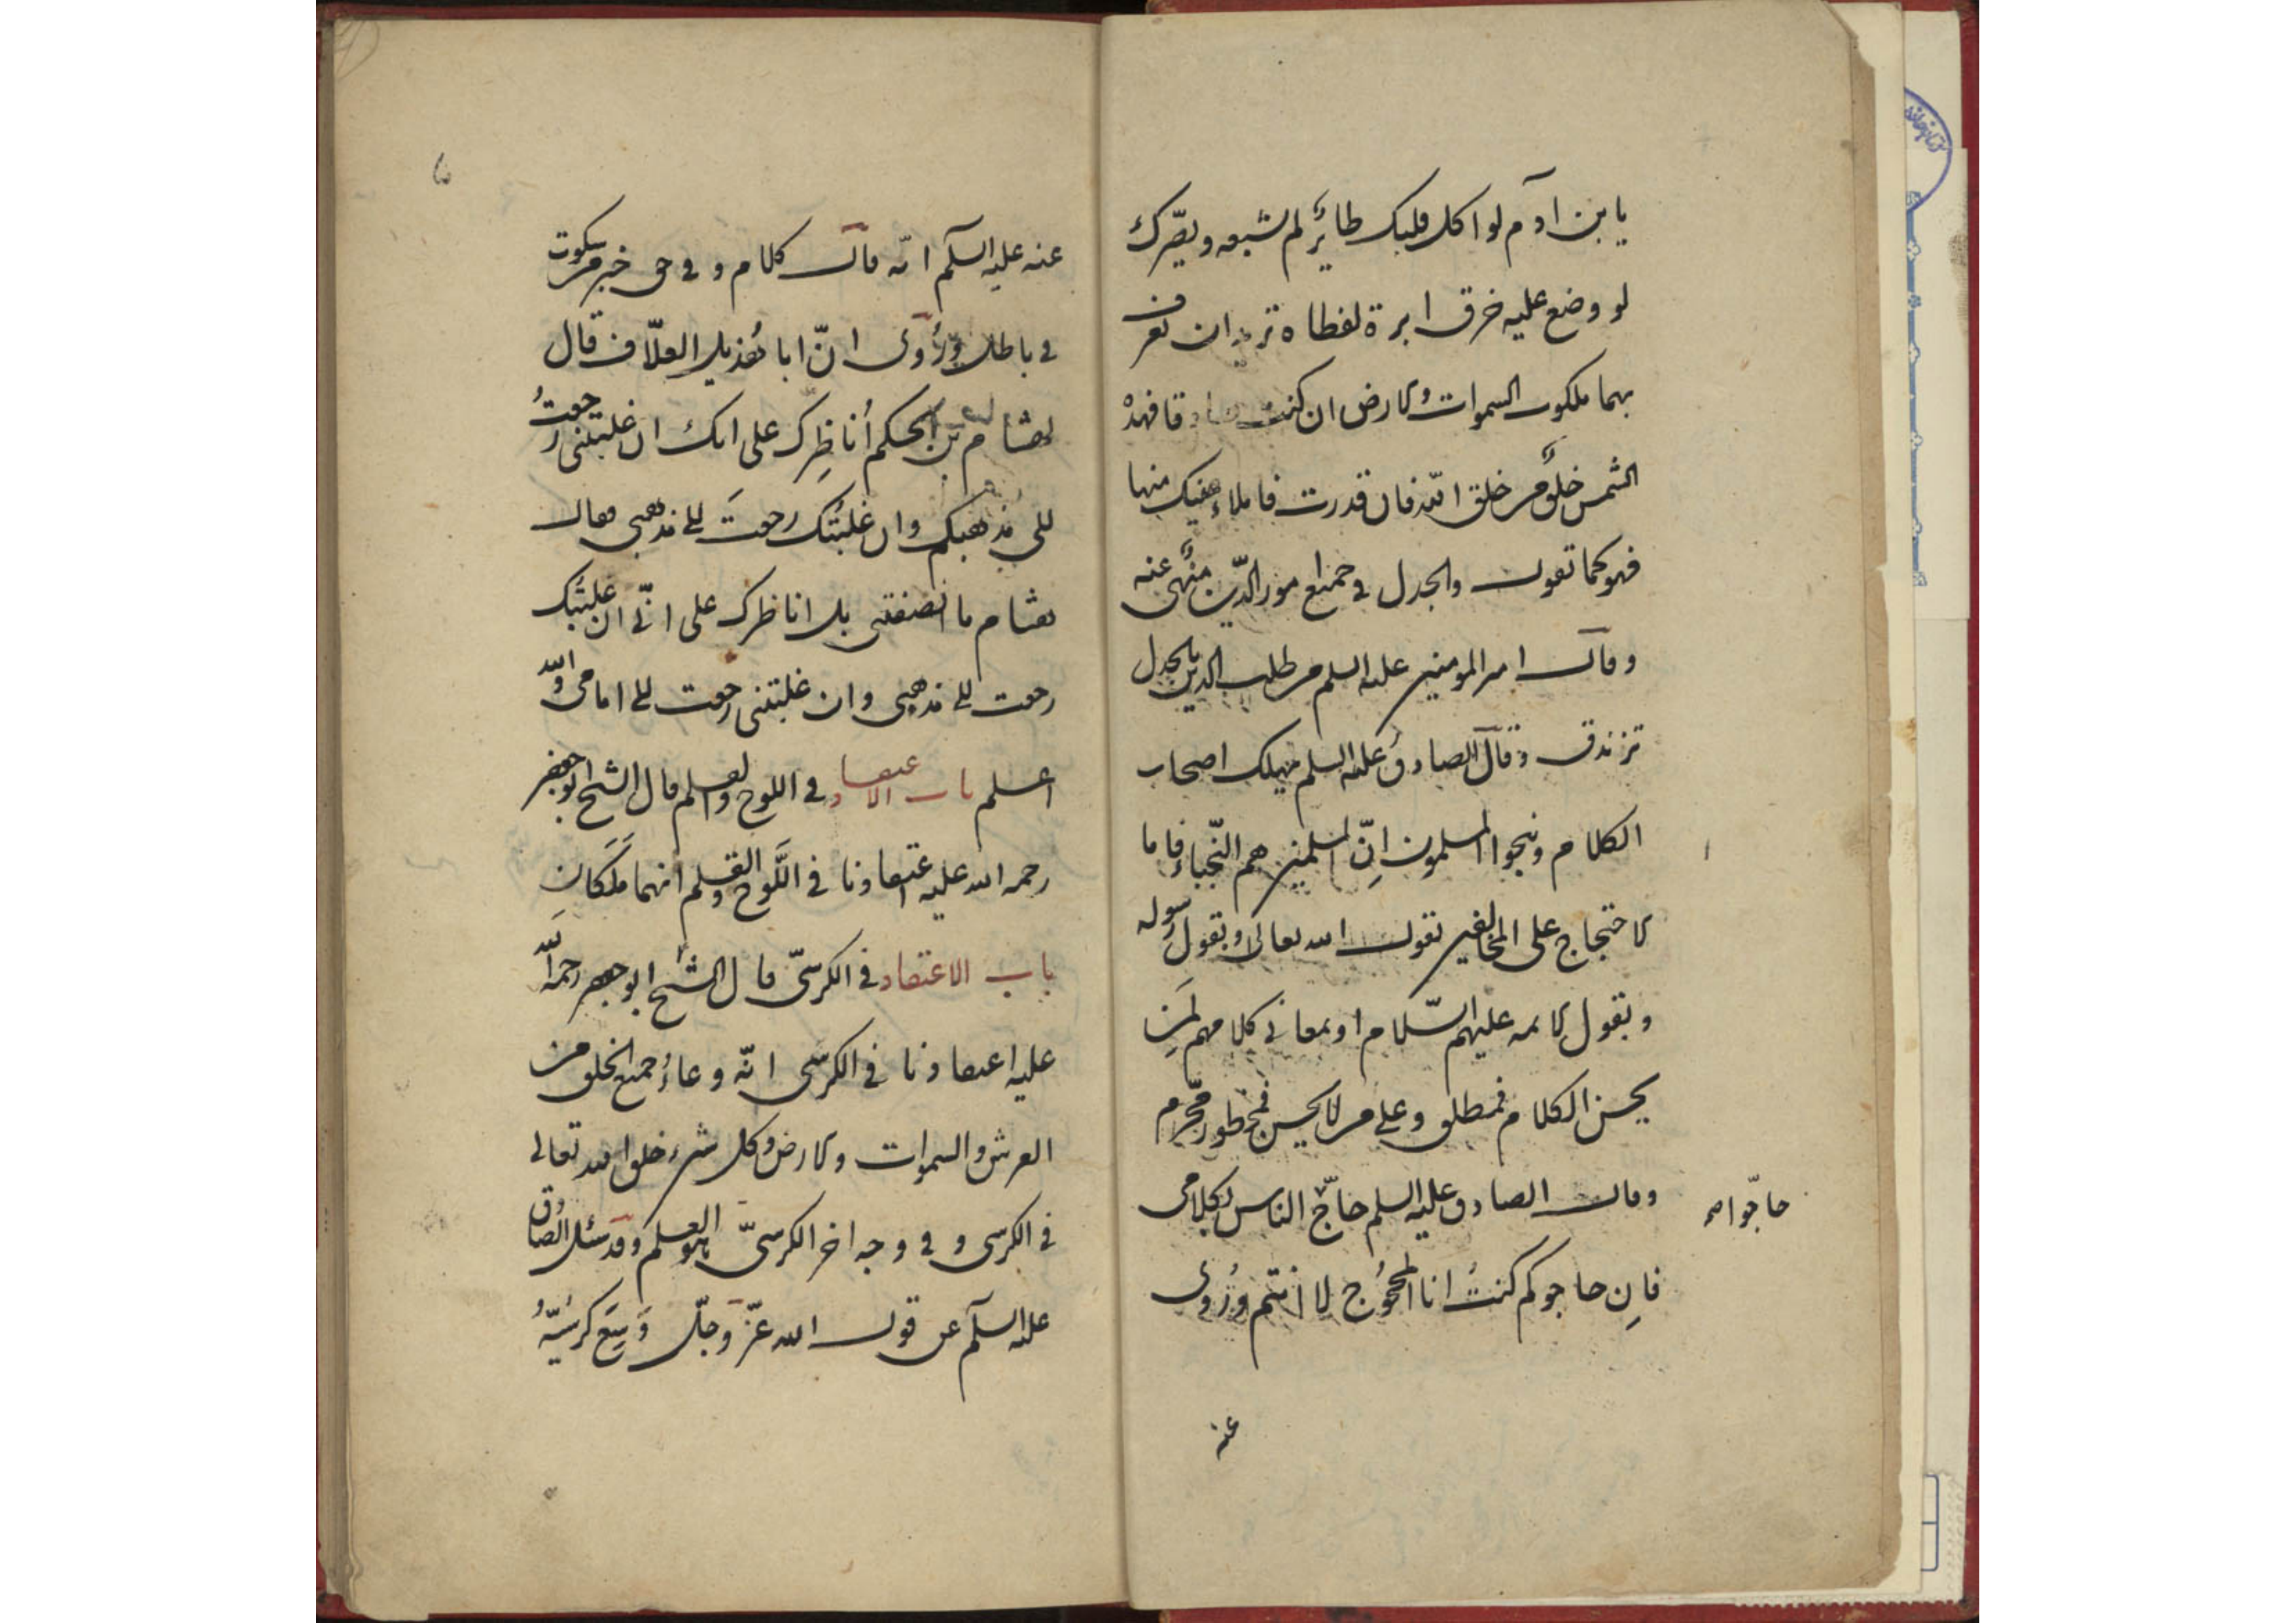 يا بن ادم لو اكل قلبك طائرٌ لم يشبعه وبصرك
لو وضع عليه خرق ابرة لغطاه تريد ان تعرف
بهما ملكوت السموات والارض ان كنت صادقا فهذه
الشمس خلقٌ من خلق الله فان قدرت فاملاء عينيك منها
فهو كما تقول والجدل في جميع امور الدّين منهىٌ عنه
وقال امير المومنين عليه السلم من طلب الدين بالجدل
تزندق وقال الصادق عليه السلم يهلك اصحاب
الكلام وينجوا المسلمون انّ المسلمين هم النّجباء فاما
الاحتجاج على المخالفين بقول الله تعالى وبقول رسوله
وبقول الائمه عليهم السّلام او بمعانى كلامهم لمن
يحسن الكلام فمطلق وعلى من لا يحسن فمحظور محّرم
وقال الصادق عليه السلم حاجّوا الناس بكلامى
حاجّوا صح
فاِن حاجوكم كنتُ انا المحجُوج لا انتم ورُوى
عنه
عنه عليه السلم انّه قال كلام فى حق خير من سكوت
فى باطل ورُوى انّ ابا هُذيل العلّاف قال
لهشام بن الحكم أناظِرك على انك ان غلبتنى رجعتُ
الى مذهبكم وان غلبتُك رجعتَ الى مذهبى فقال
هشام ما انصفتنى بل اناظرك على انّى ان غلبتُك
رجعت الى مذهبى وان غلبتنى رجعت الى امامى والله
اعلم باب الاعتقاد فى اللوح والقلم قال الشيخ ابو جعفر
رحمه الله عليه اعتقادنا فى اللَّوح والقلم انهما مَلَكان
باب الاعتقاد فى الكرسىّ قال الشيخ ابو جعفر رحمة الله
عليه اعتقادنا فى الكرسى انّه وعاءُ جميع الخلق من
العرش والسموات والارض وكل شىء خلق الله تعالى
فى الكرسى وفى وجه اخر الكرسىّ هو العلم وقد سئل الصادق
عليه السلم عن قول الله عزّ وجلّ وَسِعَ كرسيّهُ